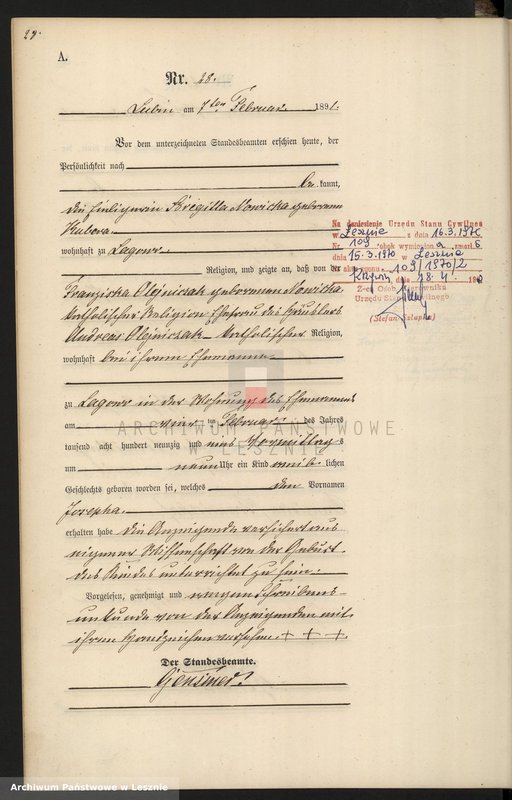 29.
A.
Nr. 28.
Lubin am 7ten Februar 1891.
Vor dem unterzeichneten Standesbeamten erschien heute, der
Persönlichkeit nach
be kannt,
die Einliegerin Brigitta Nowicka geborenen
Kubera
wohnhaft zu Lagowo
Religion, und zeigte an, daß von der
Franziska Olejniczak geborenen Nowicka
katholischer Religion Ehefrau des Häuslers
Andreas Olejniczak katholischer Religion,
wohnhaft bei ihrem Ehemanne
zu Lagowo in der Wohnung des Ehemannes
am vier ten Februar des Jahres
tausend acht hundert neunzig und eins Vormittag s
um neun Uhr ein Kind weib lichen
Geschlechts geboren worden sei, welches den Vornamen
Josepha
erhalten habe die Anzeigende versichert aus
eigener Wissenschaft von der Geburt
des Kindes unterrichtet zu sein.
Vorgelesen, genehmigt und wegen Schreibens-
unkunde von der Anzeigenden mit
ihren Handzeichen versehen + + +
Der Standesbeamte.
Na doniesienie Urzędu Stanu Cywilnego
w Lesznie z dnia 16.3.1970
Nr. 109 obok wymieniona zmarł
dnia 15.3.1970 w Lesznie
akt zgonu 109/1970/2
dnia 28.4.
Z-ca Kierownika
Urzędu Stanu Cywilnego
ARCHIWUM PAŃSTWOWE
W LESZNIE
Archiwum Państwowe w Lesznie